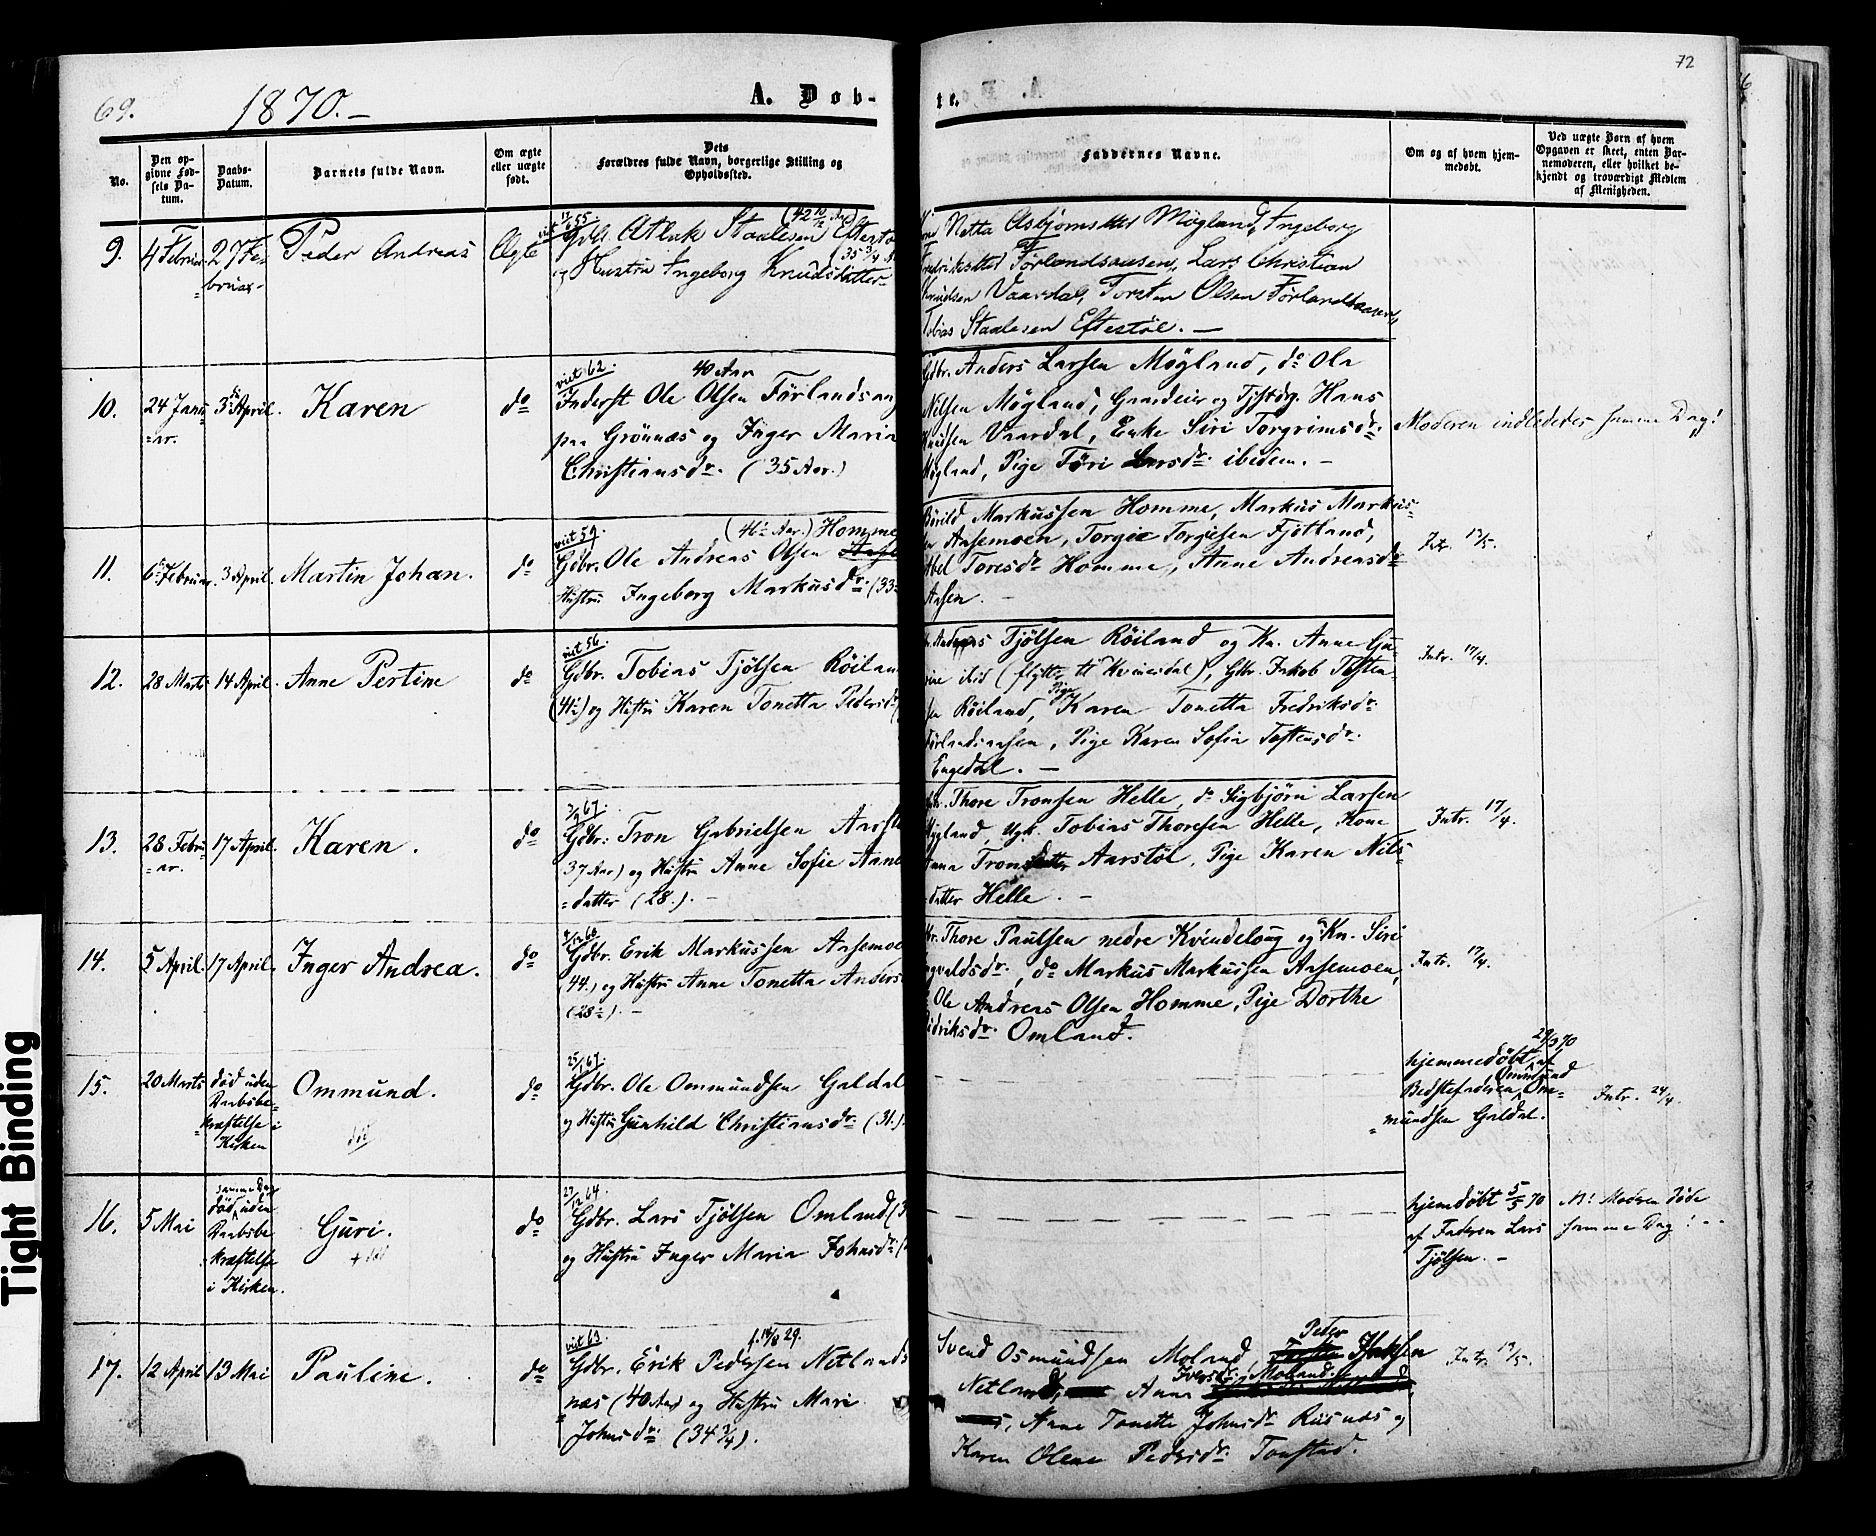 72
69. 1870.— A. Døb-
te.
No.
Den op-
givne Fød-
sels Da-
tum.
Daabs-
Datum.
Barnets fulde Navn.
Om ægte
eller uægte
født.
Dets
Forældres fulde Navn, borgerlige Stilling og
Opholdssted.
Faddernes Navne.
Om og af hvem hjem-
medøbt.
Ved uægte Børn af hvem
Opgaven er skeet, enten Bar-
nemoderen, eller hvilket be-
kjendt og troværdigt Medlem
af Menigheden.
9. 4 Februar 27 Fe-
bruar-
Peder Andreas
Ægte
Gdbr. Atlak Staalesen
Hustru Ingeborg Knudsdatter
Netta Asbjørnsdtter Møgland, Ingeborg
Fredriksdtter Førlandsaasen, Lars Christian
Knudsen Vaardal, Torsten Olsen Førlandsaasen,
Tobias Staalesen Eftestøl. —
10. 24 Janu-
=ar.
3 April.
Karen
do
viet 62. 40 Aar
Inderst Ole Olsen Førlandsaas
paa Grønnæs og Inger Maria
Christiansdr. (35 Aar.)
Gdbr. Anders Larsen Møgland, do Ola
Nilsen Møgland, Gaardeier og Hans
Knudsen Vaardal, Enke Siri Torgrimsdr.
Møgland, Pige Tøri Larsdr. ibidem. —
Moderen indlededes samme Dag!
11. 6 Februar. 3 April. Martin Johan. do
viet 59. Homme
Gdbr. Ole Andreas Olsen
Hustru Ingeborg Markusdr. (33
Børild Markussen Homme, Markus Markus-
Aasemoen, Torgie Torgiesen Fjotland,
Abel Toresdr Homme, Anne Andreasdr
Aasen. —
Intr. 17/5.
12. 28 Marts 14 April. Anne Pertine do
viet 56.
Gdbr. Tobias Tjølsen Røiland
og Hustru Karen Tonetta Pedersdr
Anders Tjølsen Røiland og Kn. Anne Gu-
(flytter til Kvinesdal), Gbr. Jakob Tosten
Røiland, Pige Karen Tonetta Fredriksdr.
Førlandsaasen, Pige Karen Sofia Tostensdr.
Engedal. —
Intr. 17/4.
13. 28 Febru-
=ar.
17 April. Karen. do
Gdbr. Tron Gabrielsen Aarstøl
37 Aar) og Hustru Anne Sofie Aane
=datter (28.). —
Thore Tronsen Helle, do Sigbjørn Larsen
Møgland, Ugk. Tobias Thoresen Helle, Kone
Anna Tronsdatter Aarstøl, Pige Karen Nils-
=datter Helle. —
Intr. 17/4.
14. 5 April. 17 April. Inger Andrea. do
Gdbr. Erik Markussen Aasemoe
(44.) og Hustru Anne Tonetta Anders
Thore Paulsen nedre Kvindelaug og Kn. Siri
do Markus Markussen Aasemoen,
Ole Andreas Olsen Homme, Pige Dorthe
Omland.
Intr. 17/4.
15. 20 Marts
død uden
Daabsbe-
kræftelse i
Kirken
Ommund.
død
do
25/1 67.
Gdbr. Ole Ommundsen Galdal
og Hustru Gunhild Christiansdr. (31.).
hjemmedøbt af
Bedstefaderen Ommund Om-
=mundsen Galdal.
Intr. 24/4.
16. 5 Mai
samme Dag
død uden
Daabsbe
kræftelse
i Kirken.
Guri.
+ død
do
27/12 64.
Gdbr. Lars Tjølsen Omland
og Hustru Inger Maria Johnsdr.
hjemdøbt 5/5 70
af Faderen Lars
Tjølsen. —
N! Moderen døde
samme Dag!
17. 12 April 13 Mai Pauline. do
viet 63 f. 14/8 29.
Gdbr. Erik Pedersen Netlands
næs (40 Aar) og Hustru Mari
Johnsdr. (34 3/4).
Svend Osmundsen Moland, Peder Isaksen
Netland, Anna Iversdr. Moland
Anne Tonette Johnsdr. Risnæs og
Karen Olene Pedersdr. Tonstad.
Tight Binding